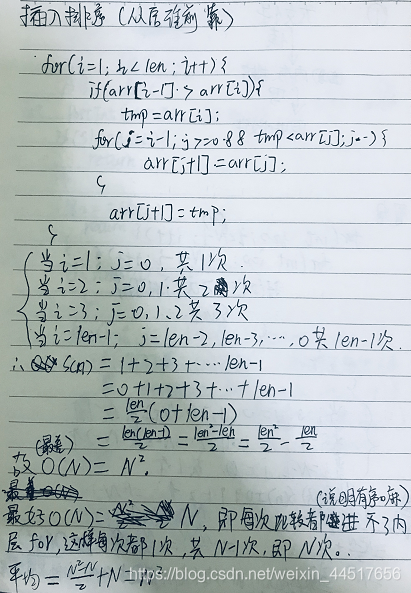 插入排序(从后往前靠)
for(i=1; i<len; i++){
if(arr[i-1] > arr[i]){
tmp=arr[i];
for(j=i-1; j>=0 && tmp<arr[j]; j--){
arr[j+1]=arr[j];
}
arr[j+1]=tmp;
}
当i=1; j=0, 共1次.
当i=2; j=0,1.共2次
当i=3; j=0,1,2共3次
当i=len-1; j=len-2, len-3, …, 0共len-1次.
∴ S(n) = 1+2+3+…len-1
=0+1+2+3+…+len-1
= len/2 (0+len-1)
= len(len-1)/2 = len²-len/2 = len²/2 - len/2
(最差)
故 O(N) = N².
(说明有序)
最好O(N)= N, 即每次比较都进不了内
层for,这样每次都1次,共N-1次,即N次。
平均 = N²-N/2 + N = N²
https://blog.csdn.net/weixin_44517656